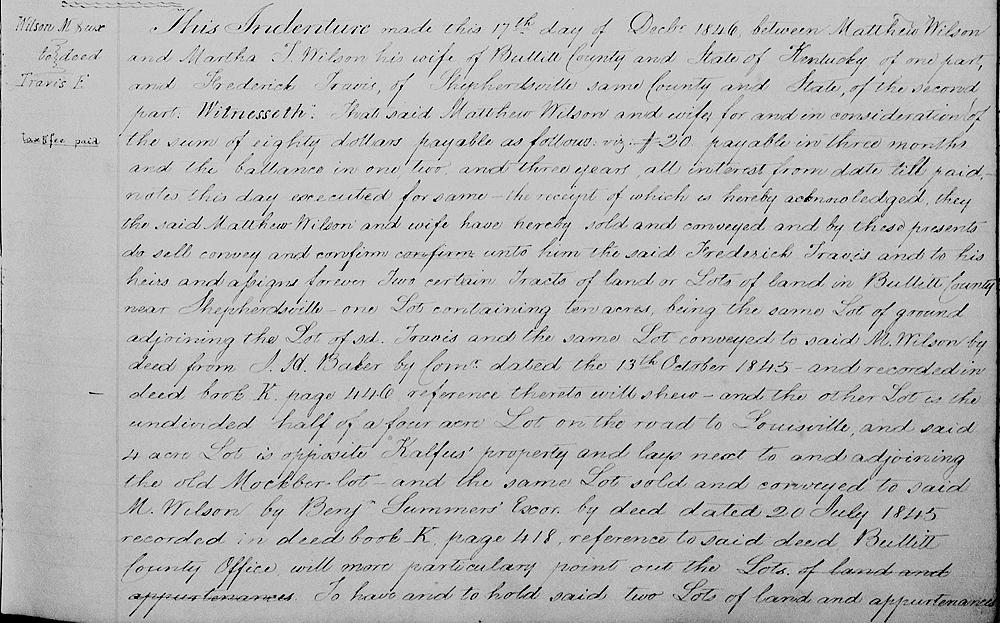 Wilson M & ux
to } deed
Travis F.
tax & fee paid
This Indenture made this 17th day of Decbr 1846, between Matthew Wilson
and Martha T. Wilson his wife of Bullitt County and State of Kentucky, of one part,
and Frederick Travis, of Shepherdsville same County and State, of the second
part. Witnesseth: That said Matthew Wilson and wife, for and in consideration of
the sum of eighty dollars payable as follows: viz: $20 payable in three months
and the ballance in one, two, and three years, all interest from date till paid,
notes this day excecuted for same – the receipt of which is hereby acknowledged, they
the said Matthew Wilson and wife have hereby sold and conveyed and by these presents
do sell convey and confirm confirm unto him the said Frederick Travis and to his
heirs and assigns forever Two certain Tracts of land or Lots of land in Bullitt County
near Shepherdsville – one Lot containing ten acres, being the same Lot of ground
adjoining the Lot of sd. Travis and the same Lot conveyed to said M. Wilson by
deed from J. H. Baker by Comr. dated the 13th October 1845 – and recorded in
deed book K. page 446 reference thereto will shew – and the other Lot is the
undivided half of a four acre Lot on the road to Louisville, and said
4 acre Lot is opposite Kalfus' property and lays next to and adjoining
the old Mockber lot – and the same Lot sold and conveyed to said
M. Wilson by Benjn Summers' Excor. by deed dated 20 July 1845
recorded in deed book K, page 418, reference to said deed, Bullitt
County Office, will more particulary point out the Lots. of land and
appurtenances. To have and to hold said two Lots of land and appurtenances